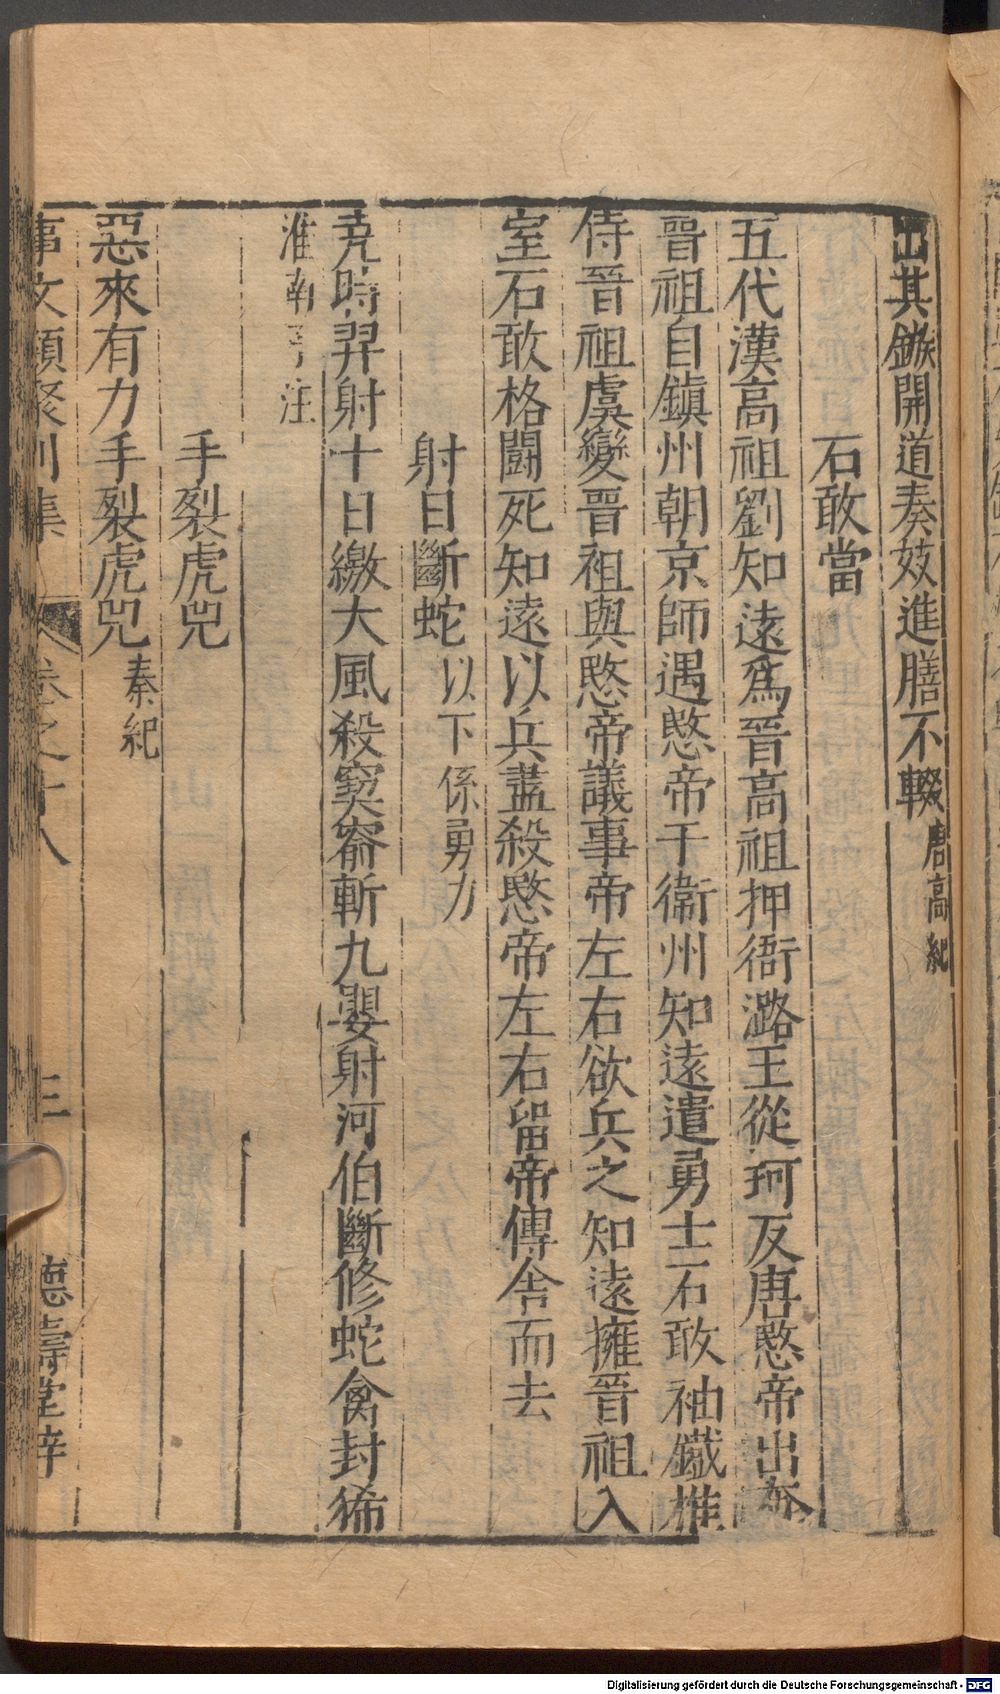 出其鏃開道奏妓進膳不輟唐高紀
石敢當
五代漢高祖劉知遠爲晉高祖押衙潞王從珂反唐愍帝出奔
晉祖自鎮州朝京師遇愍帝于衞州知遠遣勇士石敢袖鐵槌
侍晉祖虞變晉祖與愍帝議事帝左右欲兵之知遠擁晉祖入
室石敢格鬪死知遠以兵盡殺愍帝左右留帝傳舍而去
射日斷蛇以下係勇力
堯時羿射十日繳大風殺窫窬斬九嬰射河伯斷修蛇禽封狶
淮南子注
手裂虎兕
惡來有力手裂虎兕秦紀
事文類聚別集 卷之十八 三 德壽堂梓
Digitalisierung gefördert durch die Deutsche Forschungsgemeinschaft - DFG